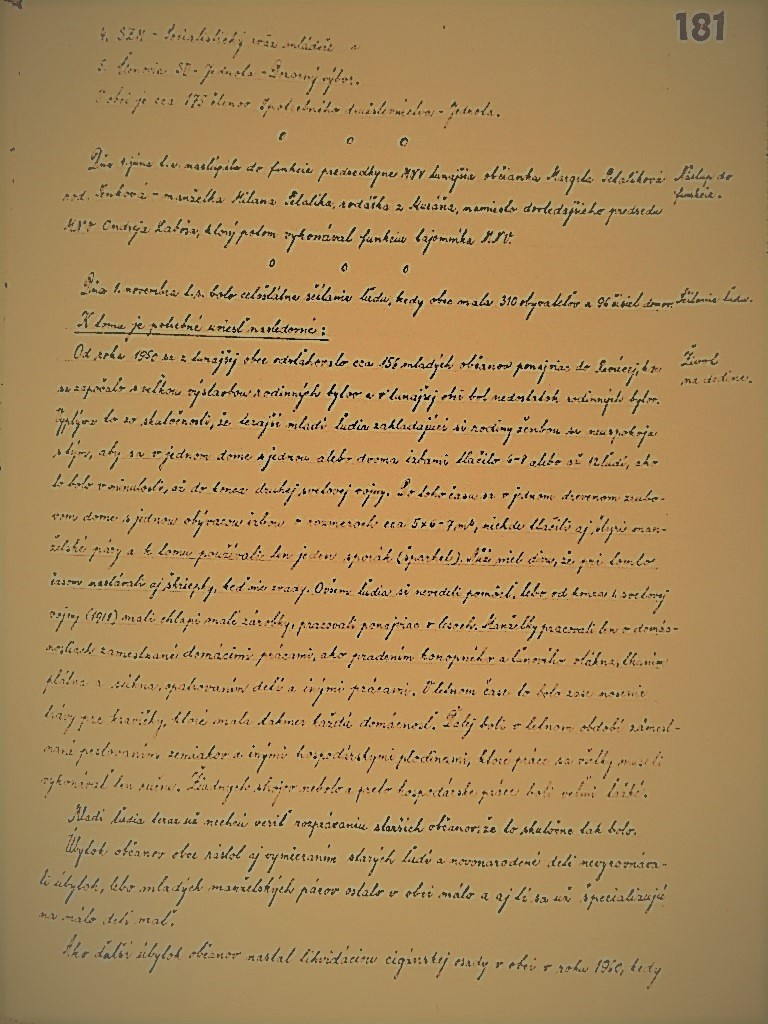 181
4. SZM - Socialistický zväz mládeže
5. Členovia SD - Jednota - Dozorný výbor.
V obci je cca 175 členov Spotrebného družstevníctva - Jednota.
o o o
Dňa 1. júna t.r. nastúpila do funkcie predsedkyne MNV tunajšia občianka Margita Petalíková
Nástup do
rod. Jenková - manželka Milana Petalíka, rodáčka z Muráňa, namiesto doterajšieho predsedu
funkcie.
MNV Ondreja Labosa, ktorý potom vykonával funkciu tajomníka MNV.
o o o
Dňa 1. novembra t.r. bolo celoštátne sčítanie ľudu, kedy obec mala 310 obyvateľov a 96 čísiel domov.
Sčítanie ľudu.
K tomu je potrebné uviesť nasledovné:
Od roku 1950 sa z tunajšej obce odsťahovalo cca 156 mladých občanov ponajviac do Revúcej, kde
Život
sa započalo s veľkou výstavbou rodinných bytov a v tunajšej obci bol nedostatok rodinných bytov.
na dedine.
Vyplýva to zo skutočnosti, že terajší mladí ľudia zakladajúci si rodiny ženbou sa neuspokoja
s tým, aby sa v jednom dome s jednou alebo dvoma izbami tlačilo 6-8 alebo až 12 ľudí, ako
to bolo v minulosti, až do konca druhej svetovej vojny. Do toho času sa v jednom drevenom zrubo-
vom dome s jednou obývacou izbou o rozmeroch cca 5x6-7 m², niekde tlačili aj štyri man-
želské páry a k tomu používali len jeden sporák (šparhet). Niže niet divu, že pri tomto
časom nastávali aj škriepky, keď nie zvady. Ovšem ľudia si nevedeli pomôcť, lebo od konca 1. svetovej
vojny (1918) mali chlapi malé zárobky, pracovali ponajviac v lesoch. Manželky pracovali len v domác-
nostiach zamestnané domácimi prácami, ako pradením konopného a ľanového vlákna, tkaním
plátna a súkna, opatrovaním detí a inými prácami. V letnom čase to bolo zase nosenie
trávy pre kravičky, ktoré mala takmer každá domácnosť. Ďalej boli v letnom období zamest-
nané pestovaním zemiakov a inými hospodárskymi plodinami, ktoré práce sa všetky museli
vykonávať len ručne. Žiadnych strojov nebolo a preto hospodárske práce boli veľmi ťažké.
Mladí ľudia teraz už nechcú veriť rozprávaniu starších občanov, že to skutočne tak bolo.
Úbytok občanov obce rástol aj vymieraním starých ľudí a novonarodené deti nevyrovnáva-
li úbytok, lebo mladých manželských párov ostalo v obci málo a aj tí sa už špecializujú
na málo detí mať.
Ako ďalší úbytok občanov nastal likvidáciou cigánskej osady v obci v roku 1960, kedy